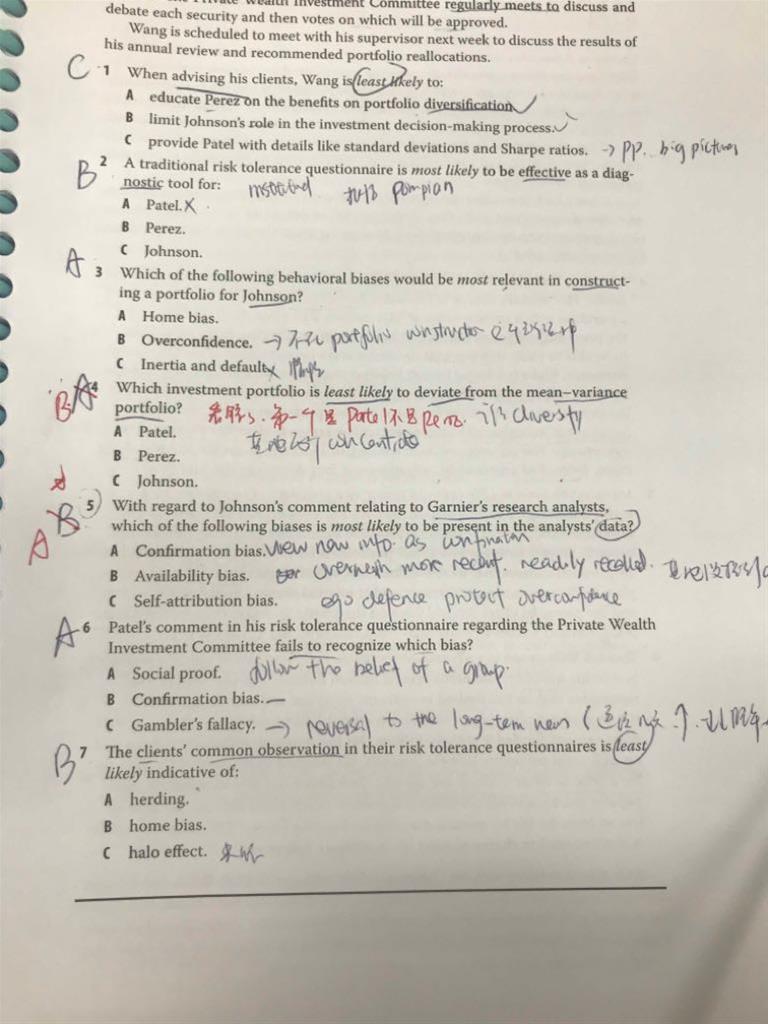 Private Wealth Investment Committee regularly meets to discuss and
debate each security and then votes on which will be approved.
Wang is scheduled to meet with his supervisor next week to discuss the results of
his annual review and recommended portfolio reallocations.
C 1 When advising his clients, Wang is least likely to:
A educate Perez on the benefits on portfolio diversification.
B limit Johnson's role in the investment decision-making process.
C provide Patel with details like standard deviations and Sharpe ratios. → PP. big picture
B 2 A traditional risk tolerance questionnaire is most likely to be effective as a diag-
nostic tool for: pompian
A Patel. X
B Perez.
C Johnson.
A 3 Which of the following behavioral biases would be most relevant in construct-
ing a portfolio for Johnson?
A Home bias.
B Overconfidence. → portfolio
C Inertia and default. X
B A 4 Which investment portfolio is least likely to deviate from the mean–variance
portfolio? 第一个是 Patel 不是 diversify
A Patel.
B Perez.
C Johnson.
A B 5 With regard to Johnson's comment relating to Garnier's research analysts,
which of the following biases is most likely to be present in the analysts' data?
A Confirmation bias. view new info. as confirmation
B Availability bias. more recent. readily recalled.
C Self-attribution bias. ego defence protect overconfidence
A 6 Patel's comment in his risk tolerance questionnaire regarding the Private Wealth
Investment Committee fails to recognize which bias?
A Social proof. follow the belief of a group.
B Confirmation bias. —
C Gambler's fallacy. → reversal to the long-term mean
B 7 The clients' common observation in their risk tolerance questionnaires is least
likely indicative of:
A herding.
B home bias.
C halo effect.